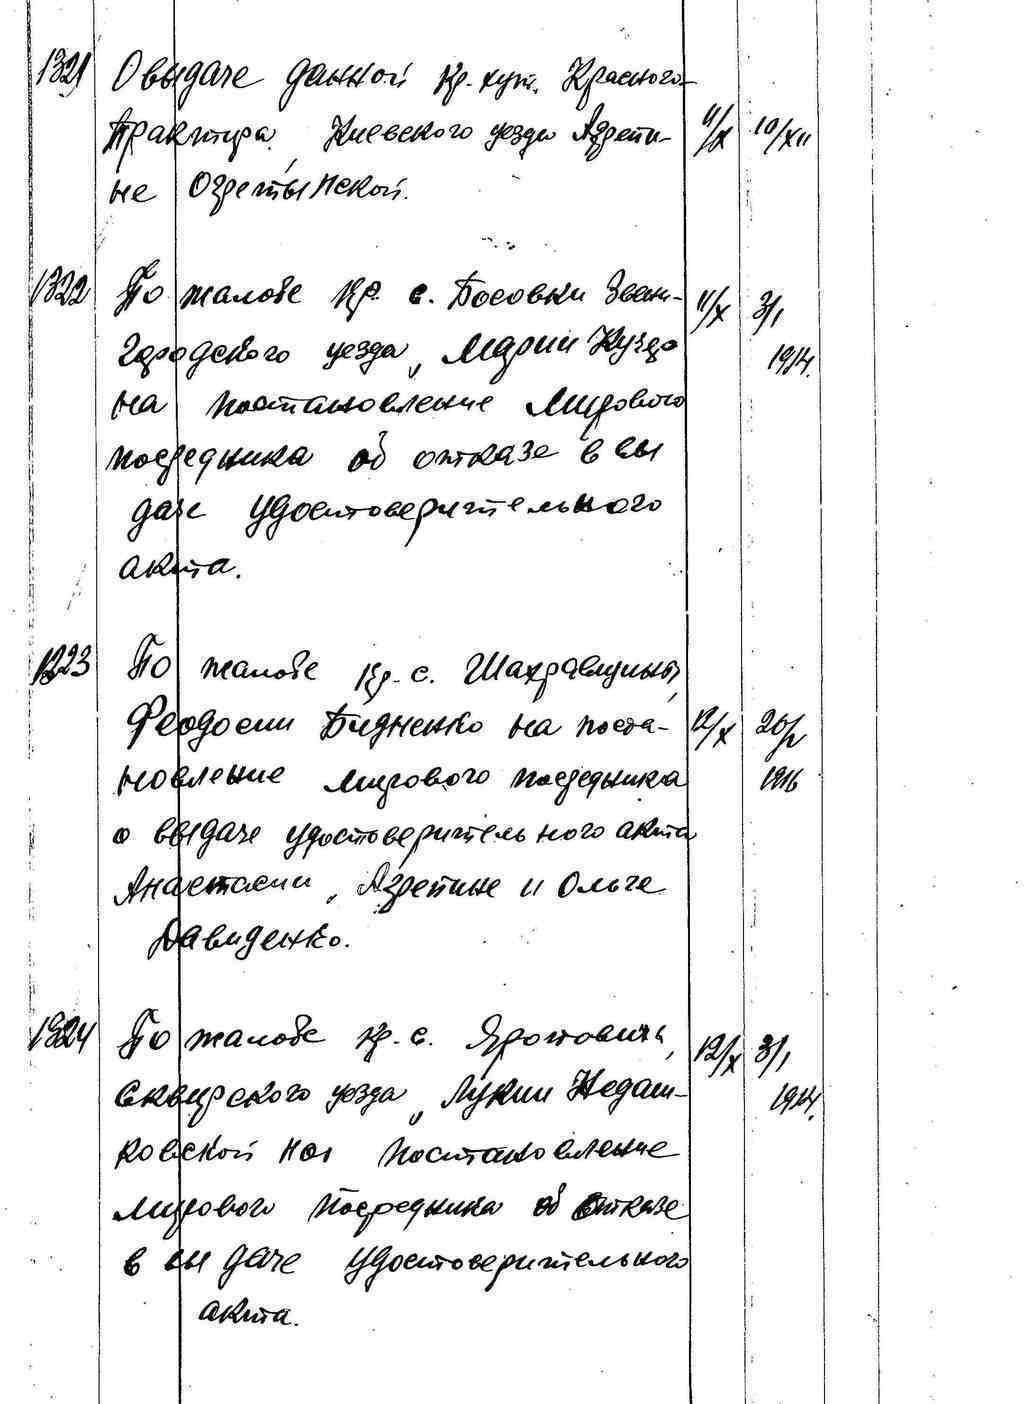 1321 О выдаче данной кр. хут. Красного-
Трактира, Киевского уезда Агрепи- 11/X 10/XII
не
1322 По жалобе кр. с. Босовки Звени- 11/X 3/1
городского уезда, Марии Кучер 1914.
на постановление Мирового
посредника об отказе в вы
даче удостоверительного
акта.
1223 По жалобе кр. с. Шахравщины,
Феодосии Бидненко на поста- 12/X 20/
новление мирового посредника 1916
о выдаче удостоверительного акта
Анастасии, Агрепине и Ольге
Давиденко.
1324 По жалобе кр. с. Яроповичи, 12/X 3/1
Сквирского уезда, Лукии Недаш- 1914.
ковской на постановление
мирового посредника об отказе
в вы даче удостоверительного
акта.